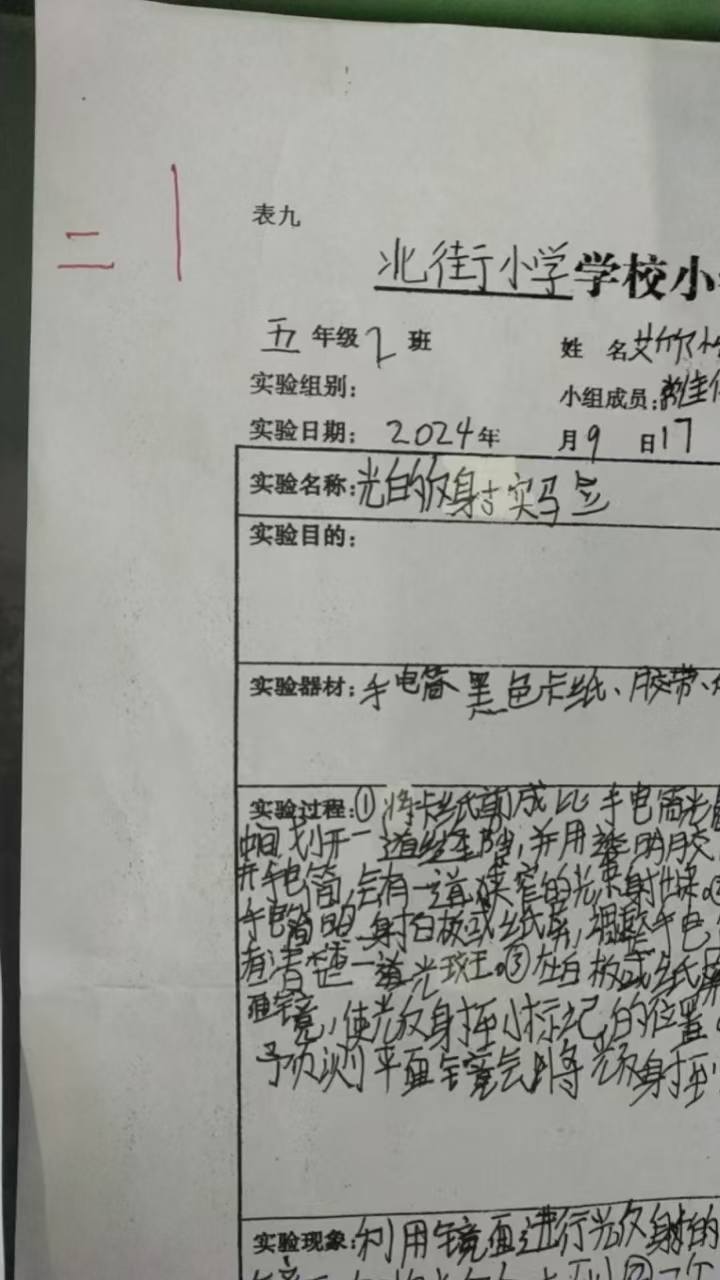 二 1
表九
北街小学学校小
五年级2班 姓 名
实验组别: 小组成员:
实验日期: 2024年 月9 日17
实验名称:光的反射实验
实验目的:
实验器材:手电筒 黑色卡纸、胶带、
实验过程:①将卡纸剪成比手电筒光
中间划开一道丝缝隙,并用透明胶
开手电筒,会有一道狭窄的光束射出来。
手电筒的 射扫白板或纸屏,调整手电
看清楚一道光斑。③在白板或纸屏
面镜,使光反射至小标记的位置
予页测平面镜会将光反射至
实验现象:利用镜面进行光反射的